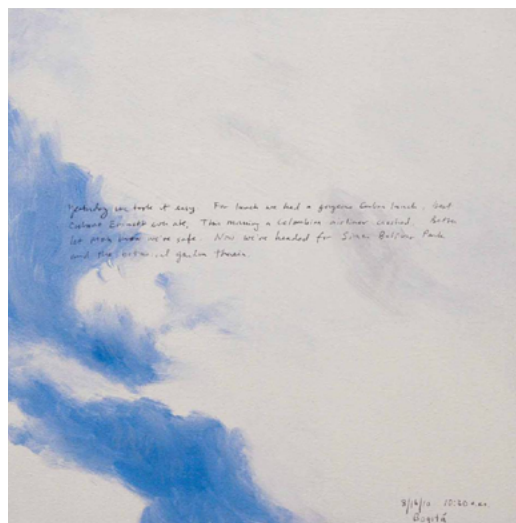 Yesterday we took it easy. For lunch we had a gorgeous Cuban lunch. best
Cubans ever ate. This morning a Colombian airliner crashed. Better
let Mom know we're safe. Now we're headed for Simon Bolivar Park
and the botanical garden therein.
8/16/10 10:20 a.m.
Bogotá